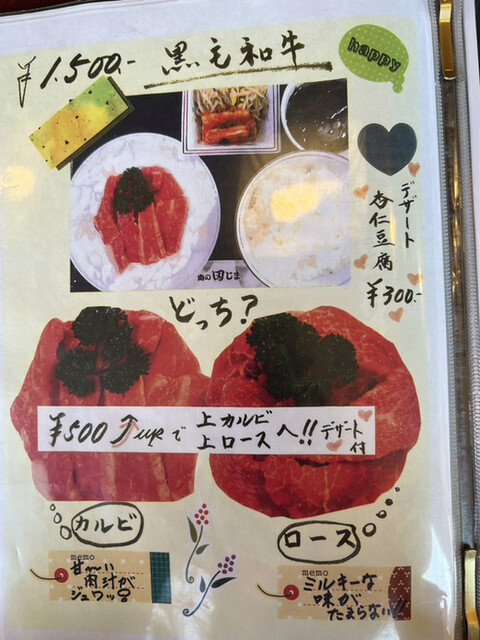 ¥1,500.-
黒毛和牛
happy
デザート
杏仁豆腐
¥300.-
肉の田じま
どっち?
¥500 ↑UPで
上カルビ
上ロース
へ!!
デザート
付
カルビ
ロース
memo
甘〜い
肉汁が
ジュワッ
memo
ミルキーな
味が
たまらない!!